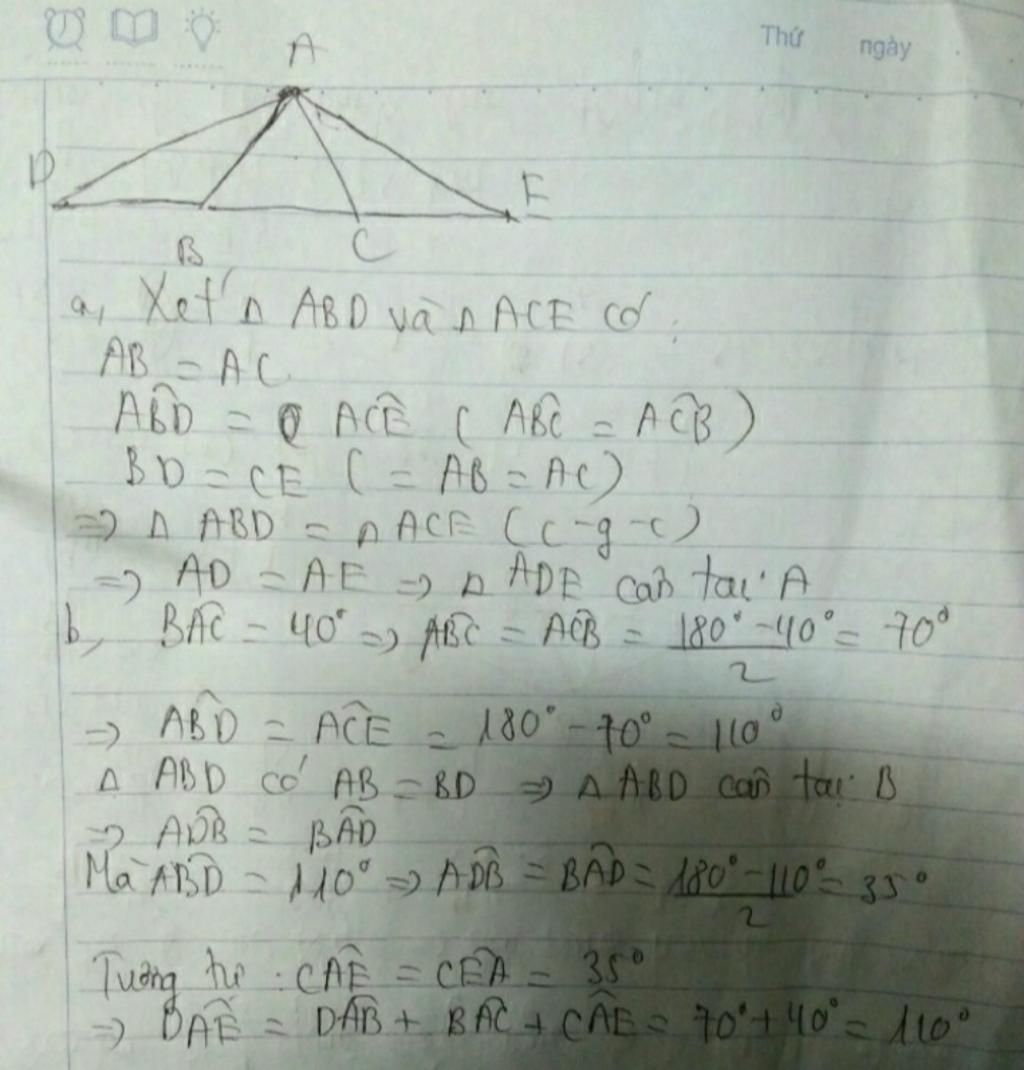 Thứ ngày
A
D
E
B
C
a, Xét Δ ABD và Δ ACE có :
AB = AC
ABD̂ = ACÊ ( ABĈ = AĈB )
BD = CE ( = AB = AC )
=> Δ ABD = Δ ACE ( c - g - c )
=> AD = AE => Δ ADE cân tại A
b, BAĈ = 40° => AB̂C = AĈB = (180° - 40°)/2 = 70°
=> AB̂D = AĈE = 180° - 70° = 110°
Δ ABD có AB = BD => Δ ABD cân tại B
=> AD̂B = BÂD
Mà AB̂D = 110° => AD̂B = BÂD = (180° - 110°)/2 = 35°
Tương tự : CÂE = CÊA = 35°
=> DÂE = DÂB + BÂC + CÂE = 70° + 40° = 110°